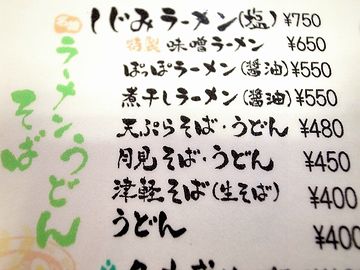 ラーメンうどん
そば
しじみラーメン(塩) ¥750
特製 味噌ラーメン ¥650
ぽっぽラーメン(醤油) ¥550
煮干しラーメン(醤油) ¥550
天ぷらそば・うどん ¥480
月見そば・うどん ¥450
津軽そば(生そば) ¥400
うどん ¥400